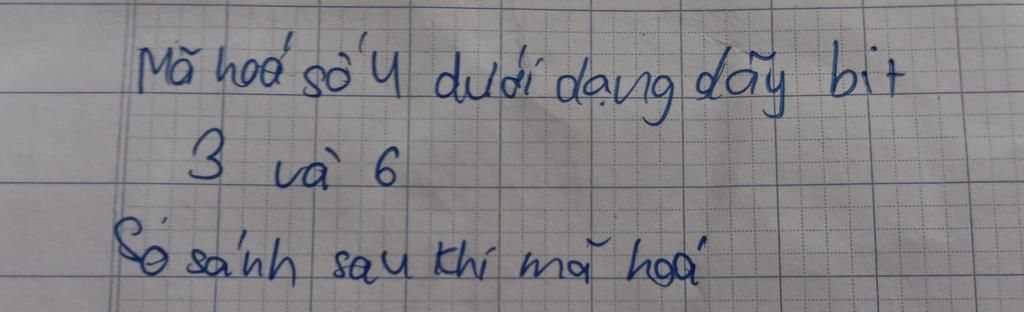 Mã hoá số 4 dưới dạng dãy bit
3 và 6
So sánh sau khi mã hoá